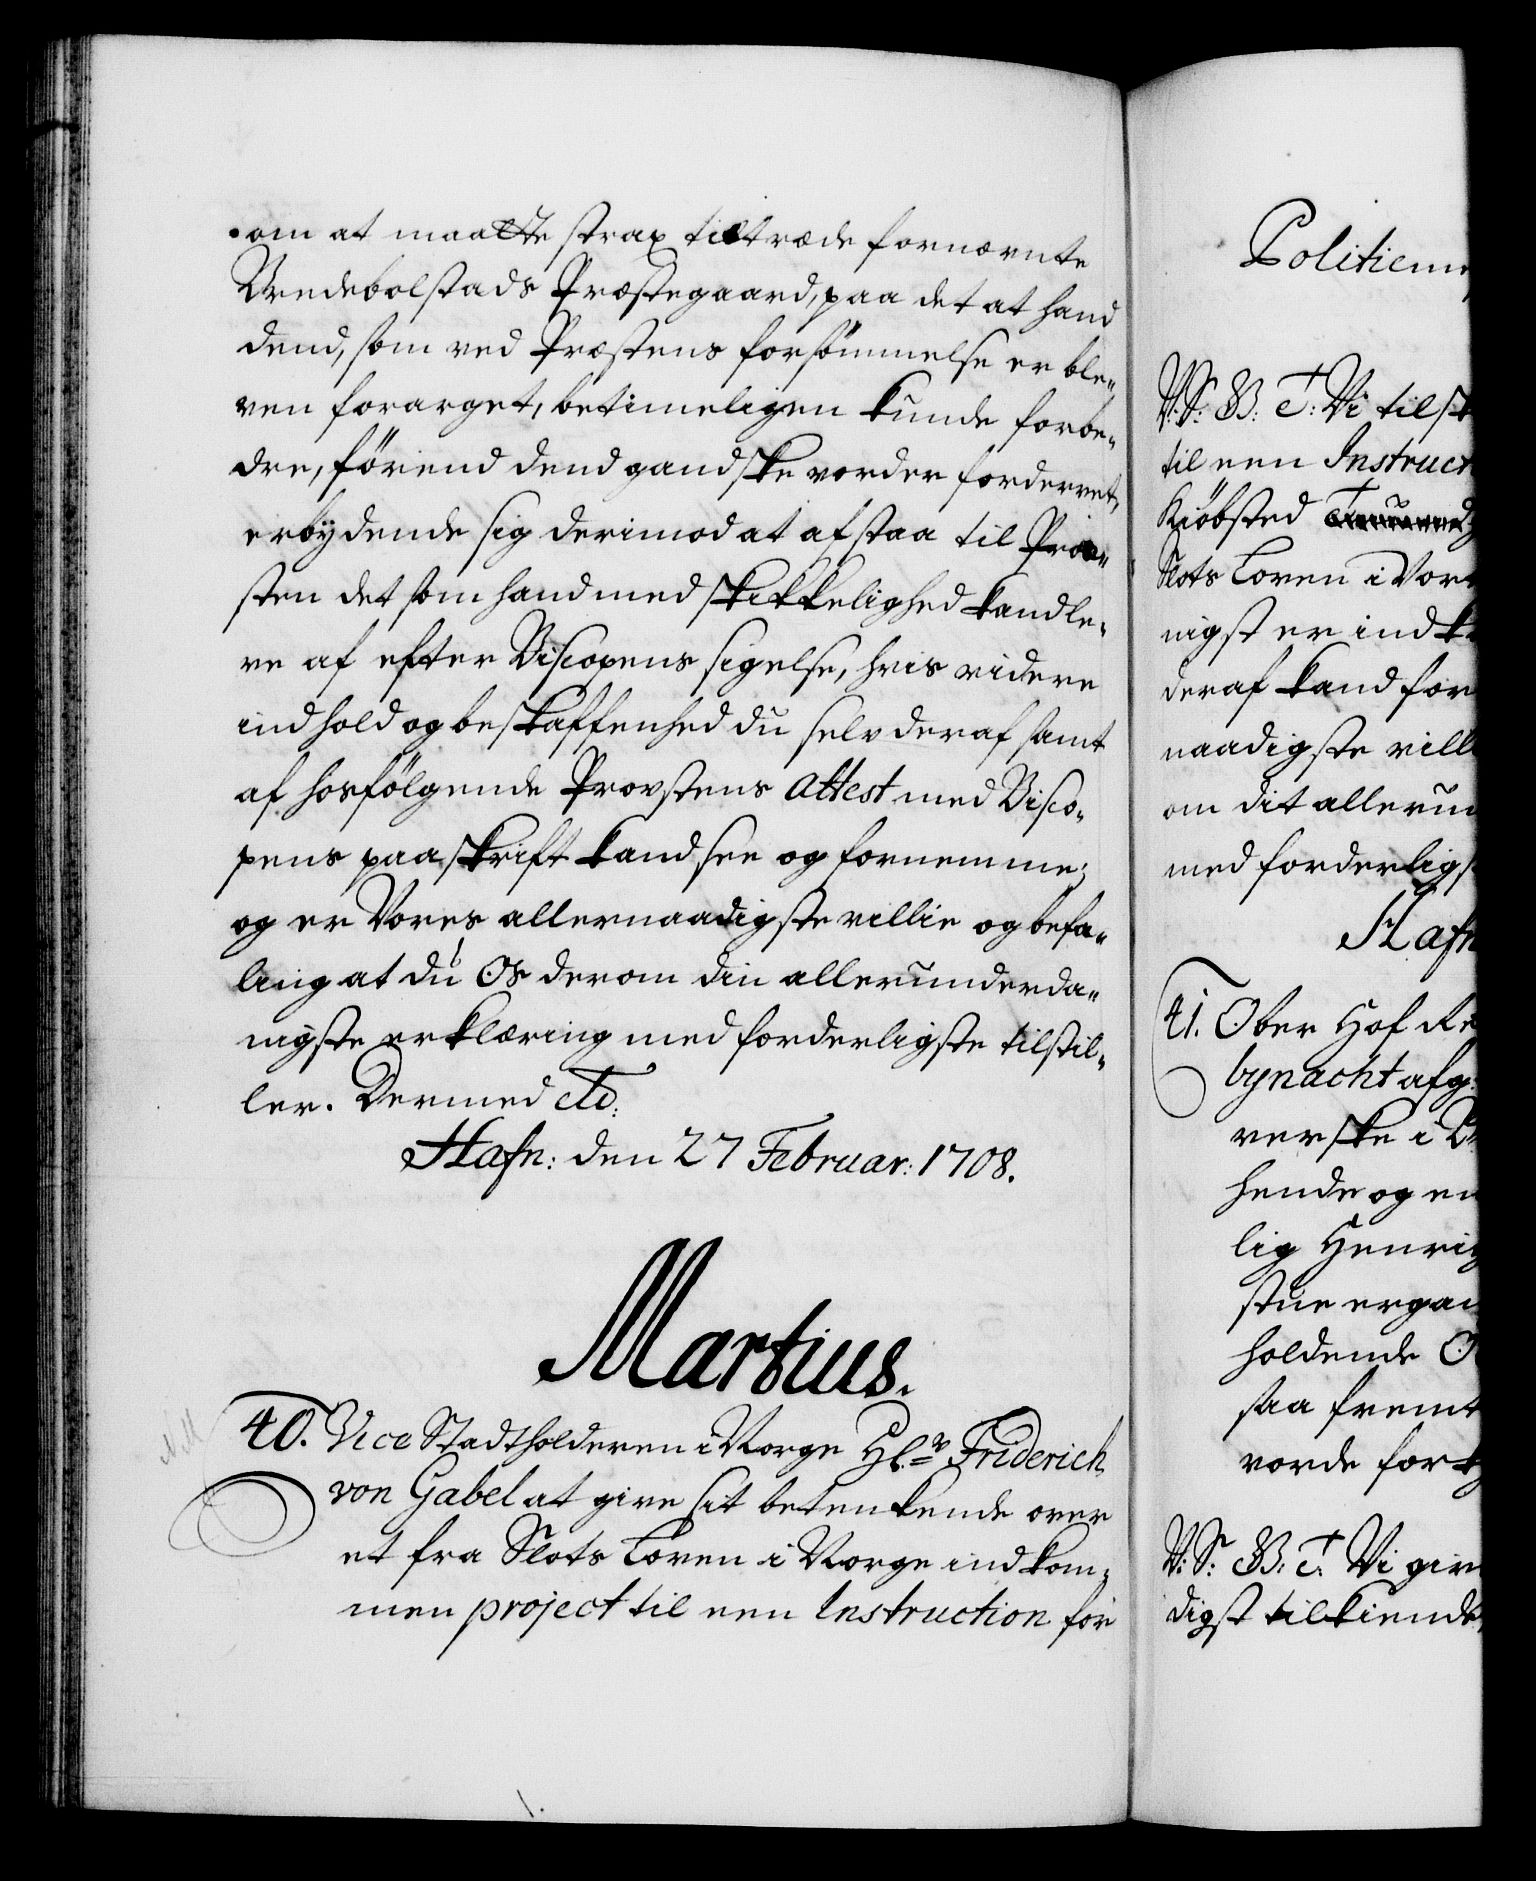 om at maatte strax tiltræde fornævnte
Vredebolstads Præstegaard, paa det at hand
dend, som ved Præstens forsömmelse er ble„
ven forarget, betimeligen kunde forbe„
dre, förend dend gandske vorder fordervet,
erbydende sig derimod at afstaa til Præ„
sten det som hand med skikkelighed kand le„
ve af efter Biscopens sigelse, hvis videre
indhold og beskaffenhed du selv deraf samt
af hosfölgende Provstens Attest med Bisco„
pens paaskrift kand see og fornemme;
og er Vores allernaadigste villie og befa„
ling at du Os derom din allerunderda„
nigste erklæring med forderligste tilstil„
ler. Dermed etc:
Hafn: den 27 Februar: 1708.
Martius.
40. Vice Stadtholderen i Norge Hl.r Friderich
von Gabel at give sit betenkende over
et fra Slots Loven i Norge indkom„
men project til een Instruction for
Politieme
V: S: G: B: T: Vi tilst
til een Instruct
Kiöbsted
Slots Loven i Nor
nigst er indk
deraf kand for
naadigste vill
om dit allerun
med forderligs
Hafn
41. Ober Hof Re
bynacht afg:
verske i
hende og en
lig Henrig
stue ergan
holdende O
saa fremt
vorde fork
V: S: G: B: T: Vi giv
digst tilkiende,